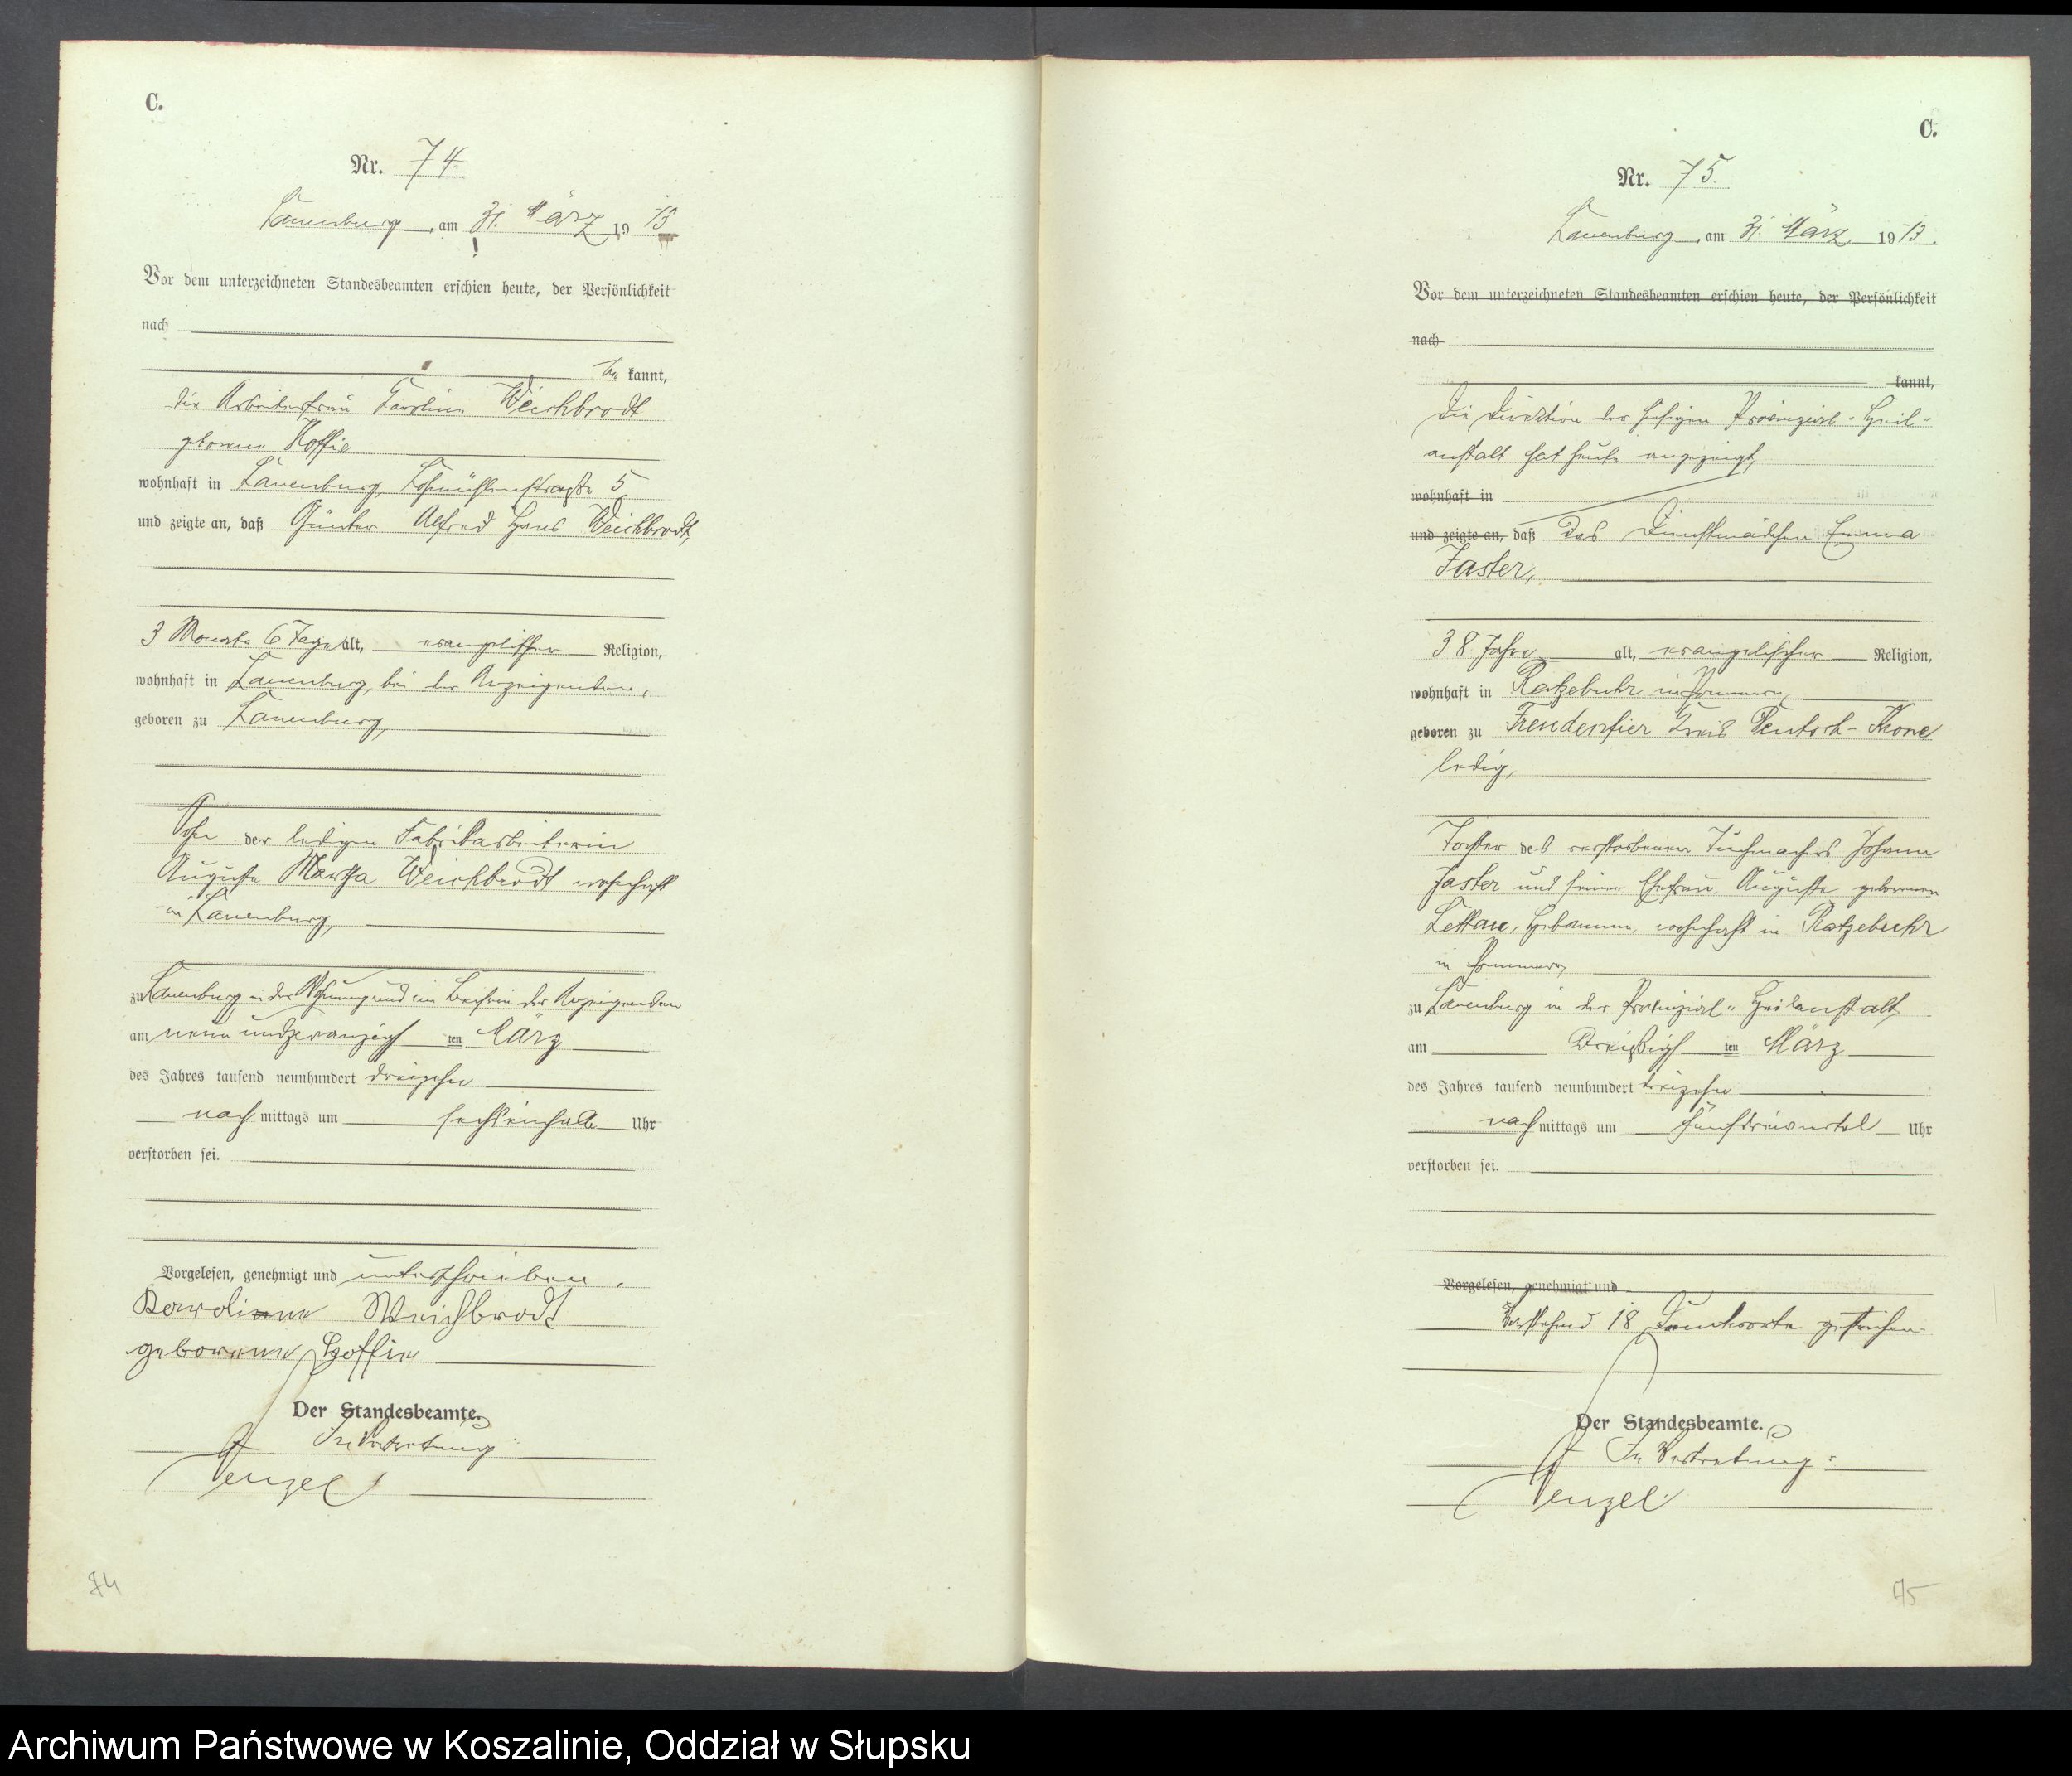 C.
Nr. 74.
Lauenburg, am 31. März 1913
Vor dem unterzeichneten Standesbeamten erschien heute, der Persönlichkeit
nach
be kannt,
die Arbeiterfrau Karoline Weichbrodt
geborene Hoffie
wohnhaft in Lauenburg, Lohmühlenstraße 5
und zeigte an, daß Günter Alfred Hans Weichbrodt,
3 Monate 6 Tage alt, evangelischer Religion,
wohnhaft in Lauenburg, bei der Anzeigenden,
geboren zu Lauenburg,
Sohn der ledigen Fabrikarbeiterin
Auguste Martha Weichbrodt wohnhaft
in Lauenburg,
zu Lauenburg, in der Wohnung und im Beisein der Anzeigenden
am neunundzwanzigsten März
des Jahres tausend neunhundert dreizehn
nach mittags um sechseinhalb Uhr
verstorben sei.
Vorgelesen, genehmigt und unterschrieben.
Karoline Weichbrodt
geborene Hoffie
Der Standesbeamte.
In Vertretung:
Wenzel
74
C.
Nr. 75.
Lauenburg, am 31. März 1913.
Vor dem unterzeichneten Standesbeamten erschien heute, der Persönlichkeit
nach
kannt,
Die Direktion der hiesigen Provinzial-Heil-
anstalt hat heute angezeigt,
wohnhaft in
und zeigte an, daß das Dienstmädchen Emma
Jaster,
38 Jahre alt, evangelischer Religion,
wohnhaft in Ratzebuhr in Pommern,
geboren zu Freudenfier Kreis Deutsch-Krone
ledig,
Tochter des verstorbenen Tuchmachers Johann
Jaster und seiner Ehefrau Auguste geborenen
Lettau, Hebamme, wohnhaft in Ratzebuhr
in Pommern,
zu Lauenburg in der Provinzial-Heilanstalt
am dreißigsten März
des Jahres tausend neunhundert dreizehn
nach mittags um fünfdreiviertel Uhr
verstorben sei.
Vorgelesen, genehmigt und
Vorstehend 18 Druckworte gestrichen.
Der Standesbeamte.
In Vertretung:
Wenzel
75
Archiwum Państwowe w Koszalinie, Oddział w Słupsku